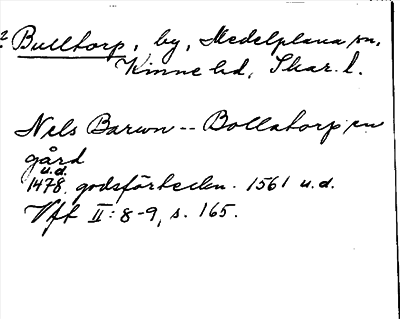 2 Bulltorp, by, Medelplana sn,
Kinne hd, Skar. l.
Nels Barun -- Bollatorp en
gård
u.d.
1478. godsförteckn. 1561 u.d.
Vft II: 8-9, s. 165.